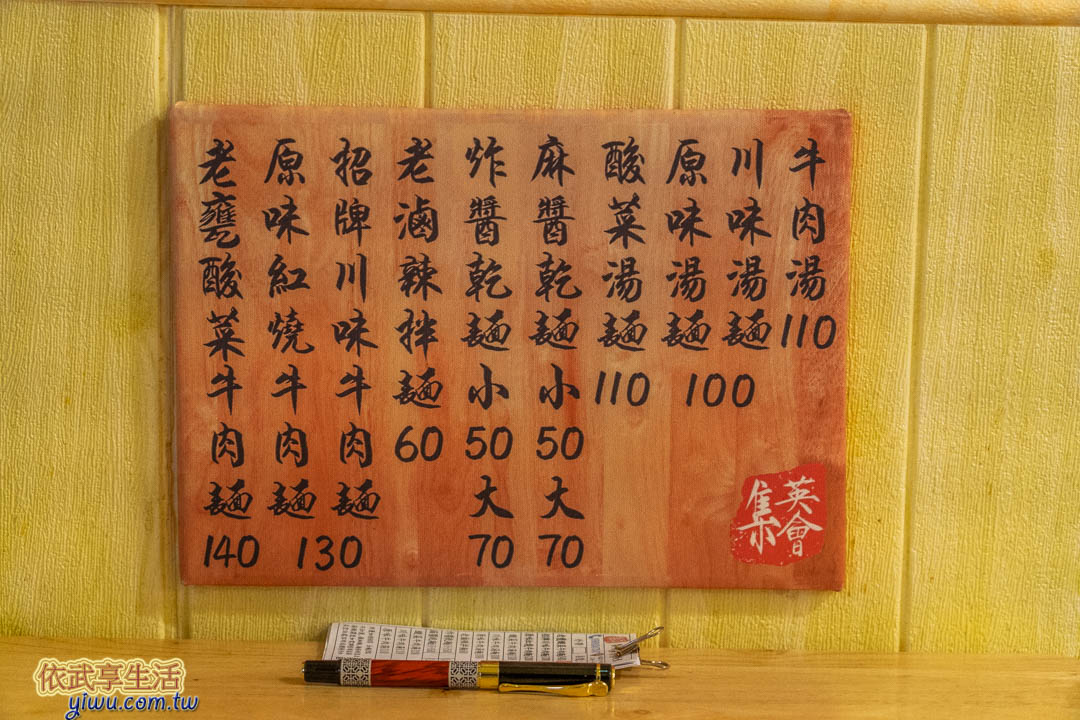 牛肉湯 110
川味湯麵
原味湯麵
100
酸菜湯麵 110
麻醬乾麵 小50 大70
炸醬乾麵 小50 大70
老滷辣拌麵 60
招牌川味牛肉麵
原味紅燒牛肉麵
130
老甕酸菜牛肉麵 140
英會
集
依武享生活
yiwu.com.tw